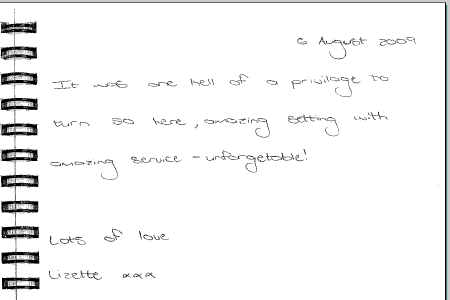 6 August 2009
It was one hell of a privilage to
turn 50 here, amazing setting with
amazing service - unforgetable!
Lots of love
Lizette xxx